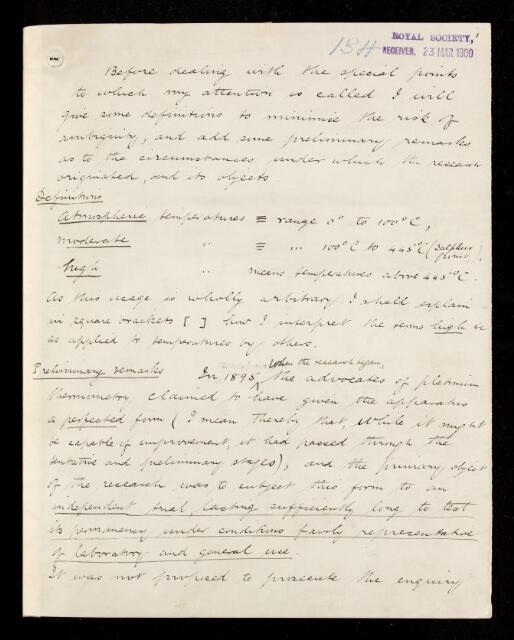 134
ROYAL SOCIETY,
RECEIVED, 23 MAR 1900
Before dealing with the special points
to which my attention is called I will
give some definitions to minimise the risk of
ambiguity, and add some preliminary remarks
as to the circumstances under which the research
originated, and its objects.
Definitions
Atmospheric temperatures ≡ range 0° to 100°C,
moderate " ≡ ... 100°C to 445°C (Sulphur point),
high " means temperatures above 445°C.
As this usage is wholly arbitrary I shall explain
in square brackets [ ] how I interpret the terms high &c
as applied to temperatures by others.
Preliminary remarks In 1895, when the research began, the advocates of platinum
thermometry claimed to have given the apparatus
a perfected form (I mean thereby that, while it might
be capable of improvement, it had passed through the
tentative and preliminary stages), and the primary object
of the research was to subject this form to an
independent trial, lasting sufficiently long to test
its permanency under conditions fairly representative
of laboratory and general use.
It was not proposed to prosecute the enquiry